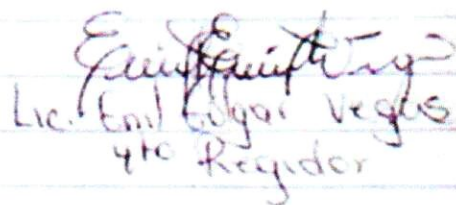 Lic. Emil Edgar Vegas
4to Regidor